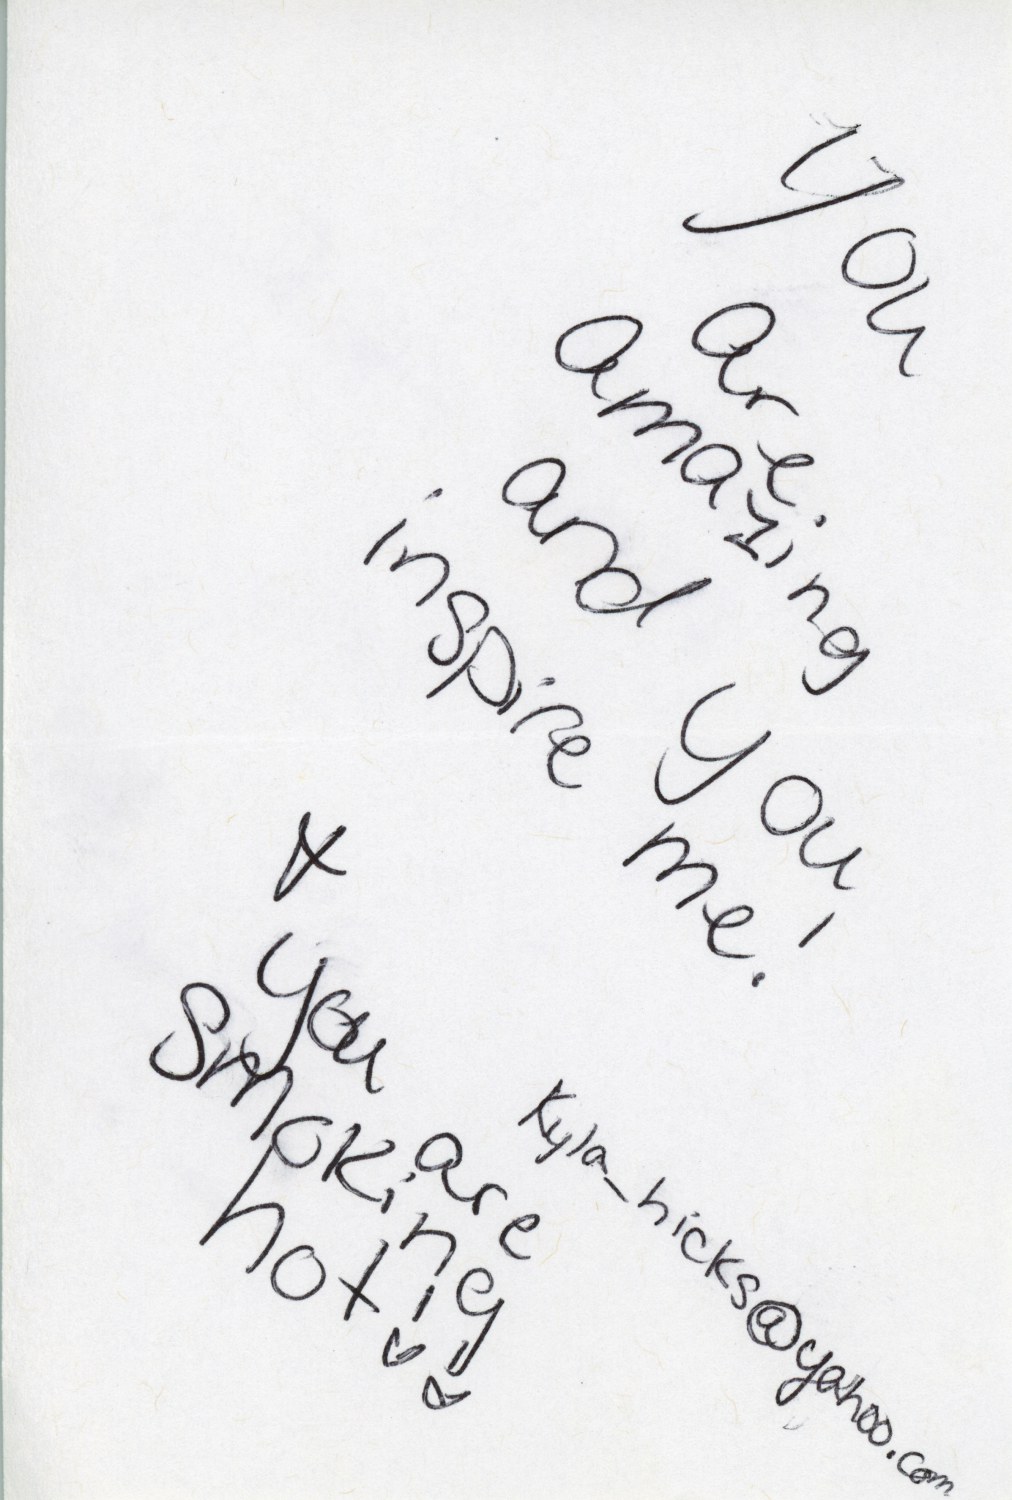 You
are
amazing
and you
inspire me!
* You are
smoking
hot!!
Kyla_hicks@yahoo.com